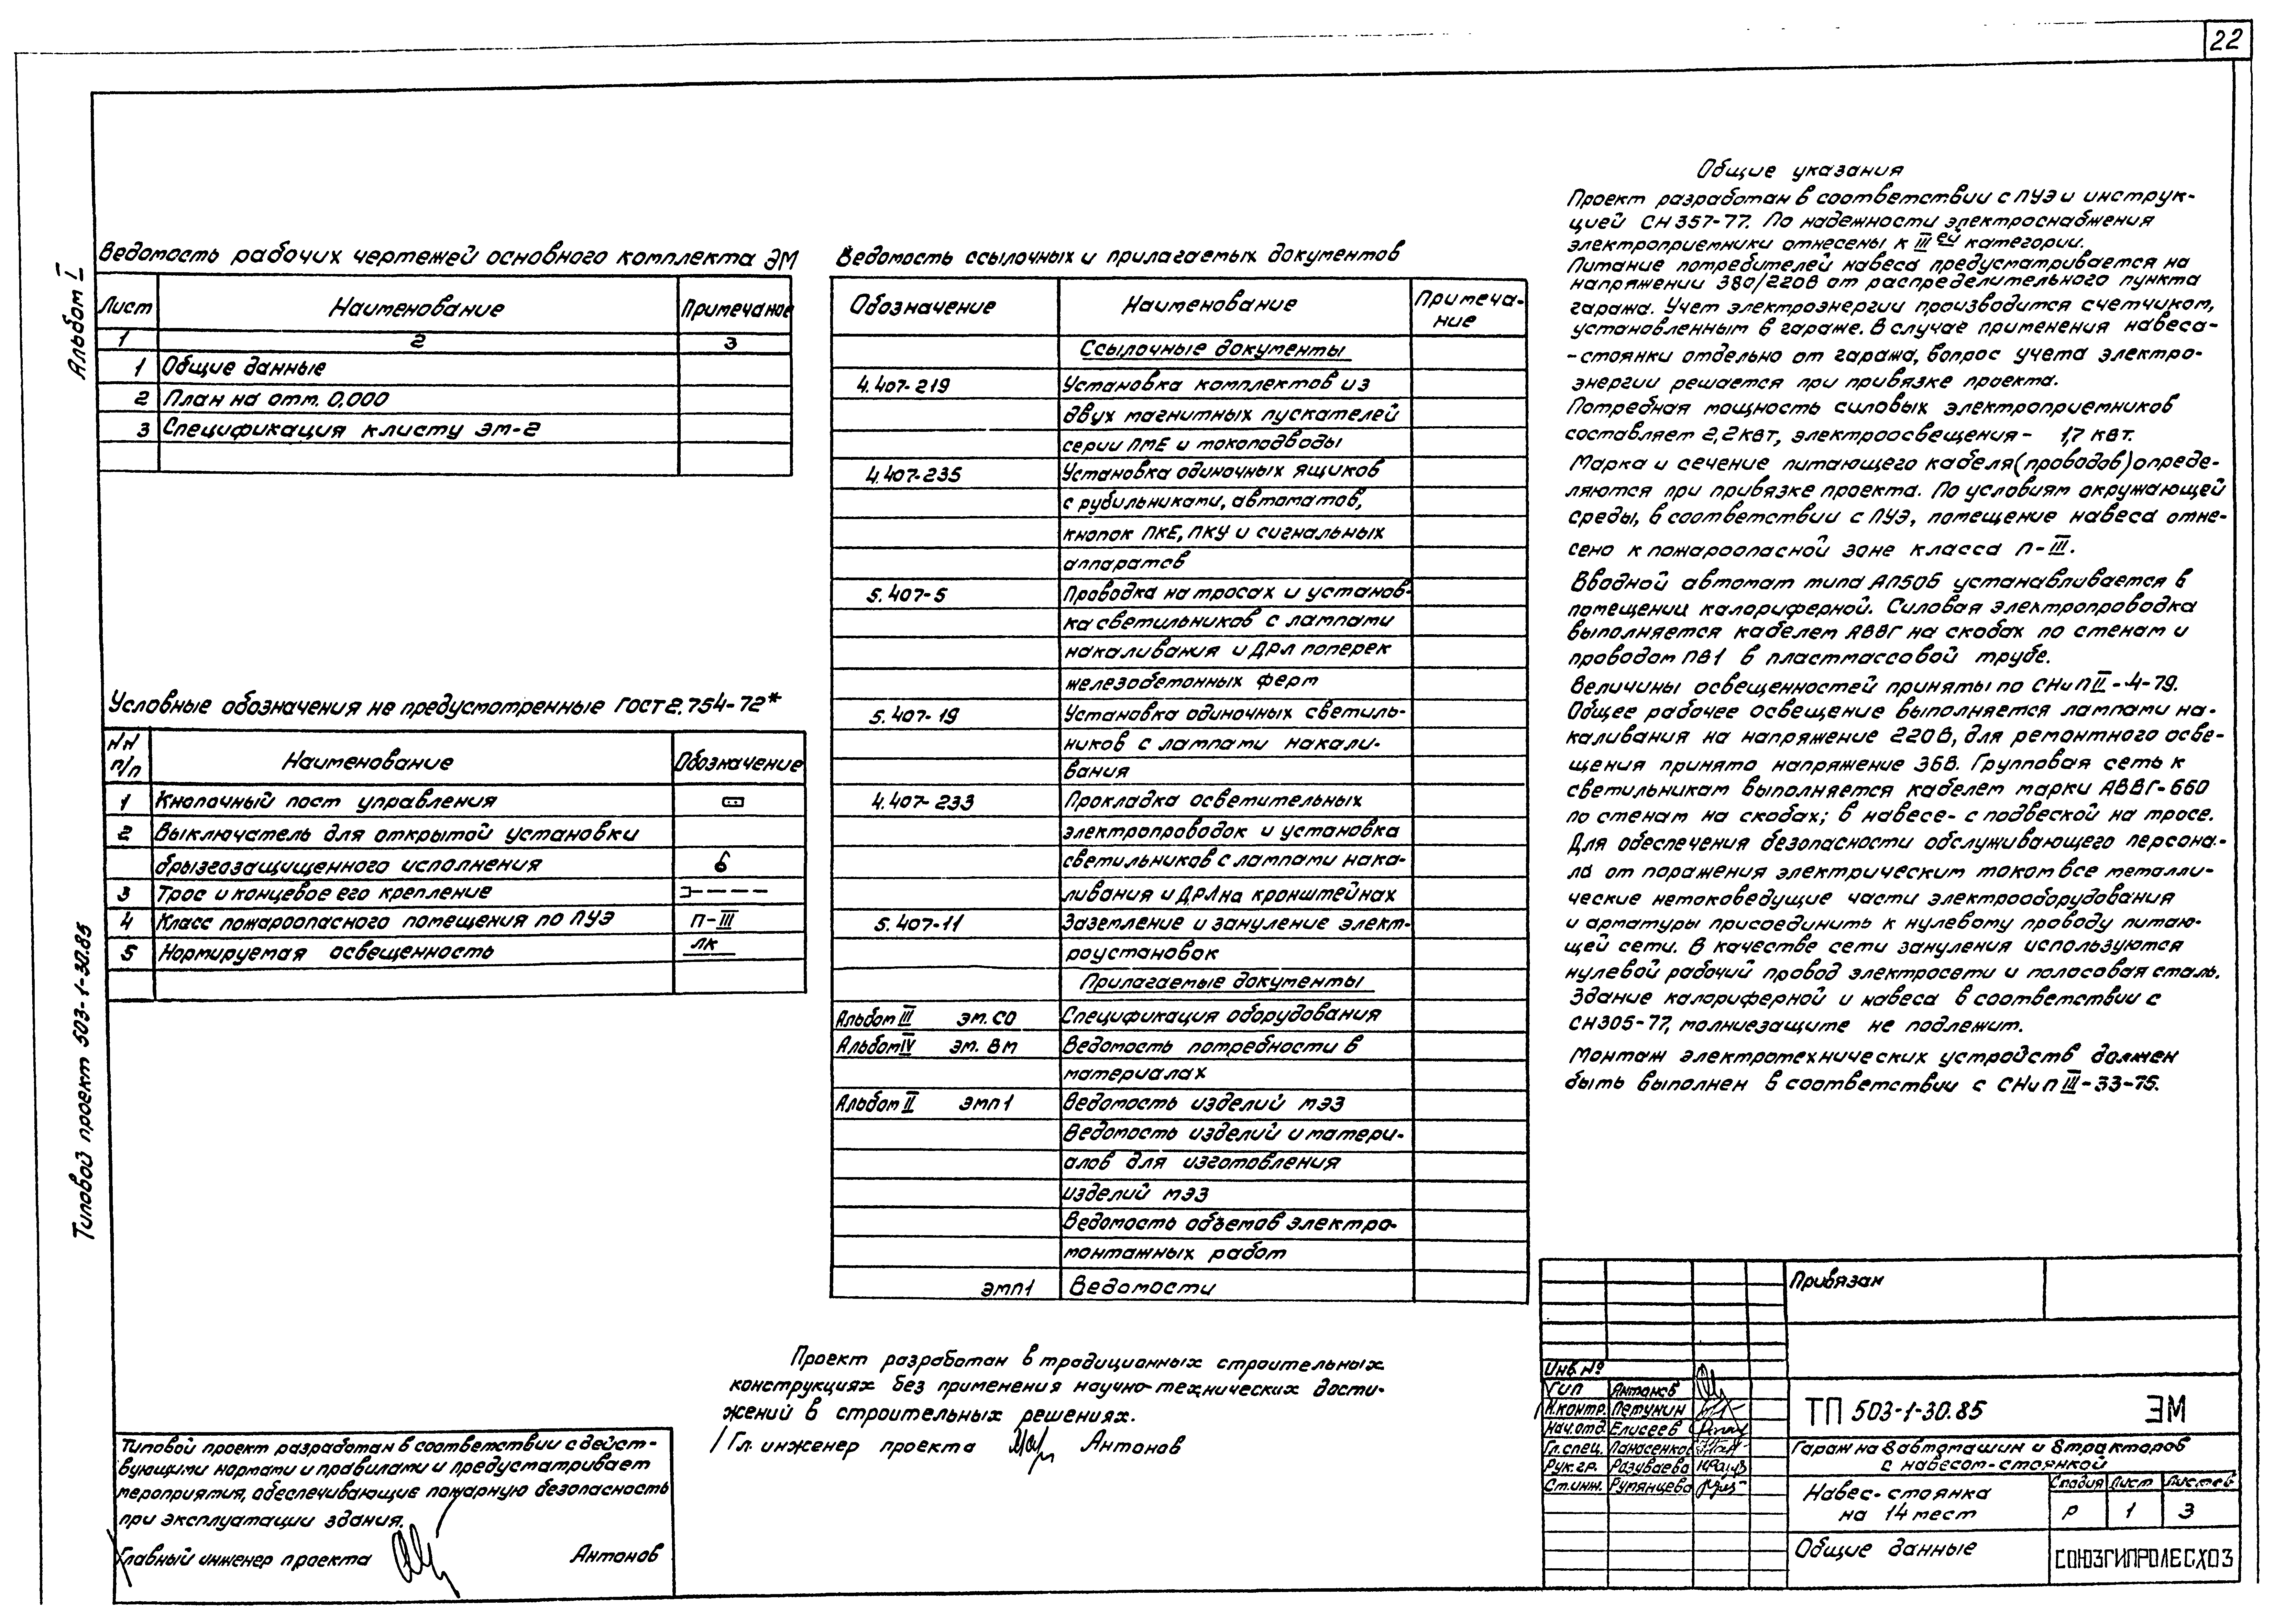 22
Альбом I
Типовой проект 503-1-30.85
Ведомость рабочих чертежей основного комплекта ЭМ
Лист Наименование Примечание
1 2 3
1 Общие данные
2 План на отм. 0,000
3 Спецификация к листу ЭМ-2
Условные обозначения не предусмотренные ГОСТ 2.754-72*
NN п/п Наименование Обозначение
1 Кнопочный пост управления
2 Выключатель для открытой установки
брызгозащищенного исполнения
3 Трос и концевое его крепление
4 Класс пожароопасного помещения по ПУЭ П-III
5 Нормируемая освещенность ЛК
Ведомость ссылочных и прилагаемых документов
Обозначение Наименование Примеча-
ние
Ссылочные документы
4.407-219 Установка комплектов из
двух магнитных пускателей
серии ПМЕ и токоподводы
4.407-235 Установка одиночных ящиков
с рубильниками, автоматов,
кнопок ПКЕ, ПКУ и сигнальных
аппаратов
5.407-5 Проводка на тросах и установ-
ка светильников с лампами
накаливания и ДРЛ поперек
железобетонных ферм
5.407-19 Установка одиночных светиль-
ников с лампами накали-
вания
4.407-233 Прокладка осветительных
электропроводок и установка
светильников с лампами нака-
ливания и ДРЛ на кронштейнах
5.407-11 Заземление и зануление элект-
роустановок
Прилагаемые документы
Альбом III ЭМ.СО Спецификация оборудования
Альбом IV ЭМ.ВМ Ведомость потребности в
материалах
Альбом II ЭМП1 Ведомость изделий МЭЗ
Ведомость изделий и матери-
алов для изготовления
изделий МЭЗ
Ведомость объемов электро-
монтажных работ
ЭМП1 Ведомости
Общие указания
Проект разработан в соответствии с ПУЭ и инструк-
цией СН 357-77. По надежности электроснабжения
электроприемники отнесены к III ей категории.
Питание потребителей навеса предусматривается на
напряжении 380/220В от распределительного пункта
гаража. Учет электроэнергии производится счетчиком,
установленным в гараже. В случае применения навеса-
-стоянки отдельно от гаража, вопрос учета электро-
энергии решается при привязке проекта.
Потребная мощность силовых электроприемников
составляет 2,2 кВт, электроосвещения- 1,7 кВт.
Марка и сечение питающего кабеля (проводов) опреде-
ляются при привязке проекта. По условиям окружающей
среды, в соответствии с ПУЭ, помещение навеса отне-
сено к пожароопасной зоне класса П-III.
Вводной автомат типа АП50Б устанавливается в
помещении калориферной. Силовая электропроводка
выполняется кабелем АВВГ на скобах по стенам и
проводом ПВ1 в пластмассовой трубе.
Величины освещенностей приняты по СНиП II-4-79.
Общее рабочее освещение выполняется лампами на-
каливания на напряжение 220В, для ремонтного осве-
щения принято напряжение 36В. Групповая сеть к
светильникам выполняется кабелем марки АВВГ-660
по стенам на скобах; в навесе- с подвеской на тросе.
Для обеспечения безопасности обслуживающего персона-
ла от поражения электрическим током все металли-
ческие нетоковедущие части электрооборудования
и арматуры присоединить к нулевому проводу питаю-
щей сети. В качестве сети зануления используются
нулевой рабочий провод электросети и полосовая сталь.
Здание калориферной и навеса в соответствии с
СН305-77, молниезащите не подлежит.
Монтаж электротехнических устройств должен
быть выполнен в соответствии с СНиП III-33-75.
Проект разработан в традиционных строительных
конструкциях без применения научно-технических дости-
жений в строительных решениях.
Гл. инженер проекта Антонов
Типовой проект разработан в соответствии с дейст-
вующими нормами и правилами и предусматривает
мероприятия, обеспечивающие пожарную безопасность
при эксплуатации здания.
Главный инженер проекта Антонов
Привязан
Инв. №
ГИП Антонов
Н.контр. Петунин
Нач.отд. Елисеев
Гл.спец. Панасенко
Рук.гр. Разуваева
Ст.инж. Румянцева
ТП 503-1-30.85 ЭМ
Гараж на 8 автомашин и 8 тракторов
с навесом-стоянкой
Навес-стоянка
на 14 мест
Стадия Лист Листов
Р 1 3
Общие данные
СОЮЗГИПРОЛЕСХОЗ